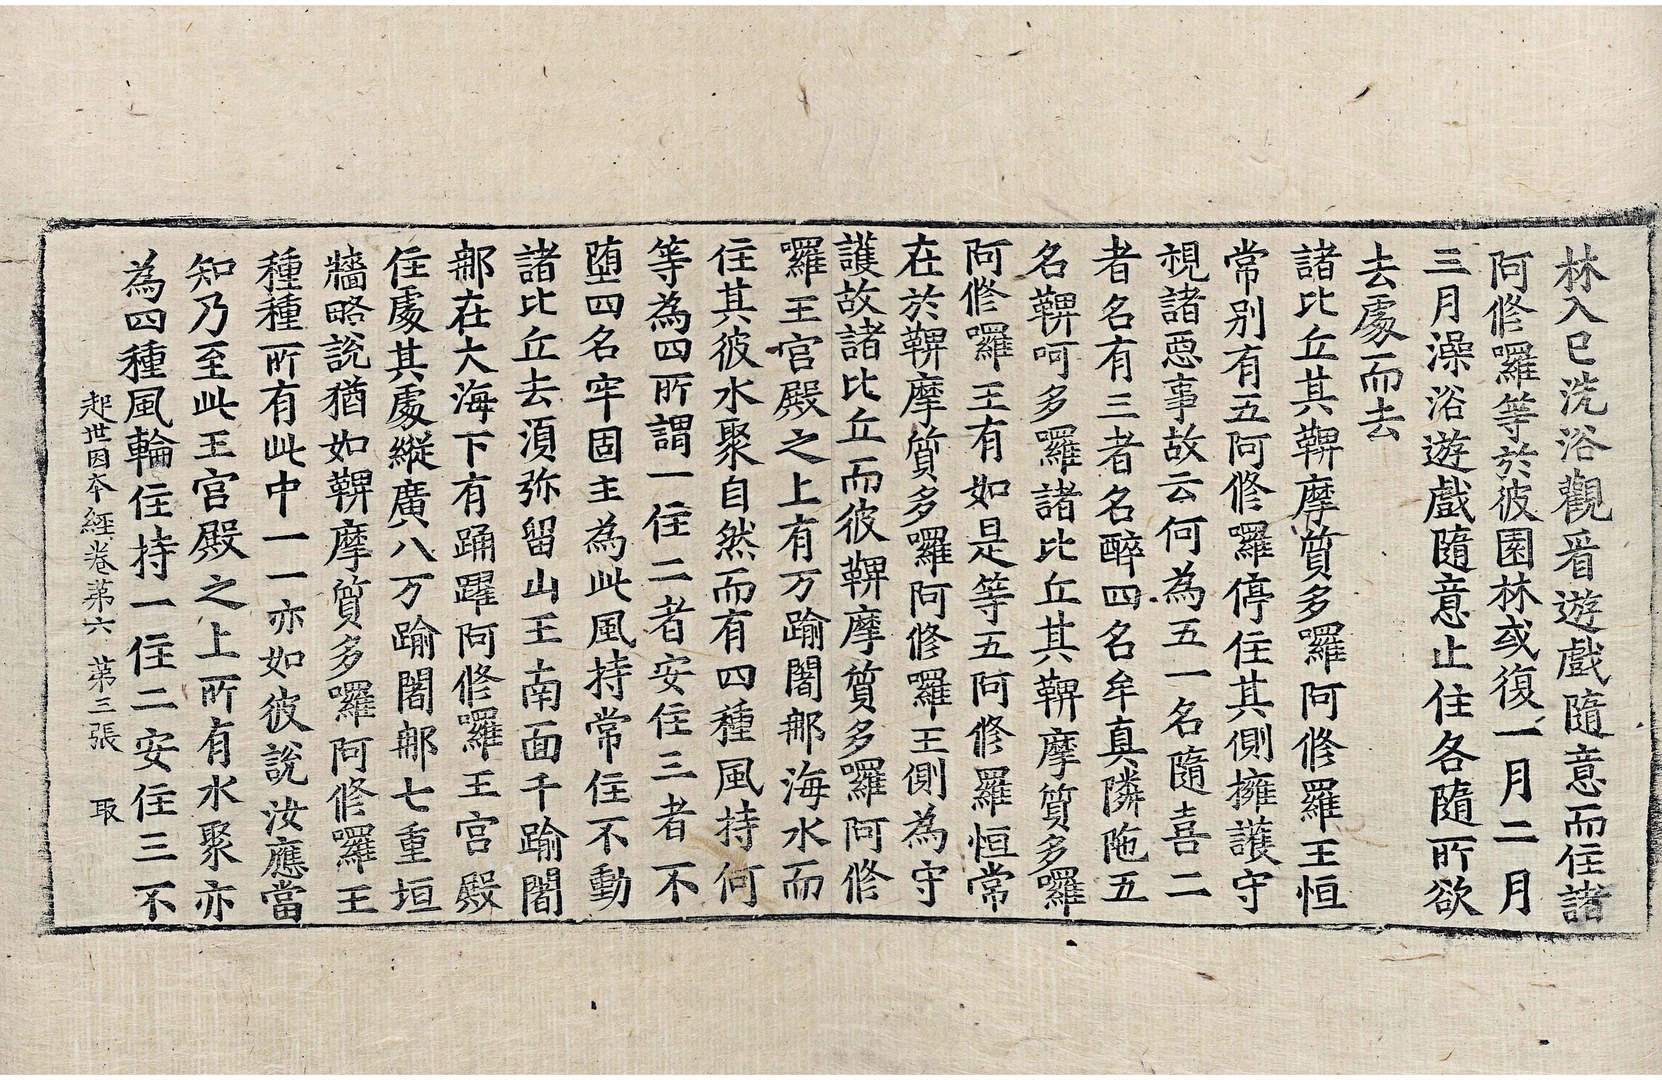 林入已洗浴觀看遊戲隨意而住諸
阿修囉等於彼園林或復一月二月
三月澡浴遊戲隨意止住各隨所欲
去處而去
諸比丘其鞞摩質多囉阿修羅王恒
常別有五阿修囉停住其側擁護守
視諸惡事故云何為五一名隨喜二
者名有三者名醉四名牟真隣陁五
名鞞呵多囉諸比丘其鞞摩質多囉
阿修囉王有如是等五阿修羅恒常
在於鞞摩質多囉阿修囉王側為守
護故諸比丘而彼鞞摩質多囉阿修
囉王宮殿之上有万踰闍那海水而
住其彼水聚自然而有四種風持何
等為四所謂一住二者安住三者不
墮四名牢固主為此風持常住不動
諸比丘去湏弥留山王南面千踰闍
那在大海下有踊躍阿修囉王宮殿
住處其處縱廣八万踰闍那七重垣
牆略說猶如鞞摩質多囉阿修囉王
種種所有此中一一亦如彼說汝應當
知乃至此王宮殿之上所有水聚亦
為四種風輪住持一住二安住三不
起世因本經卷第六 第三張 取